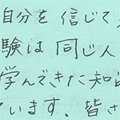 自分を信じて
験は同じ人
学んできた知
ています、皆さ